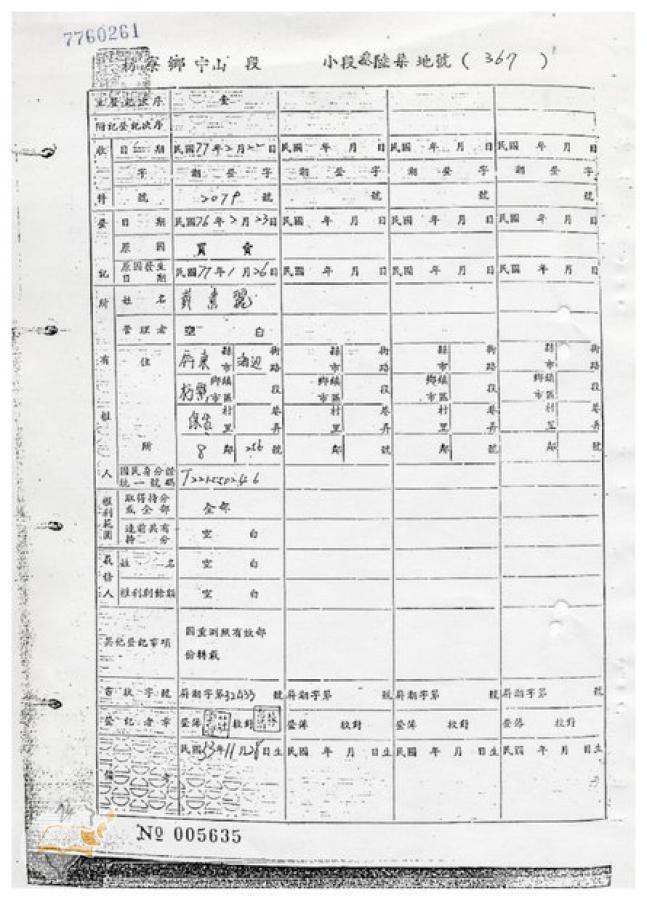 7760261
枋寮鄉中山段 小段叁陸柒地號(367)
主登記次序 壹
附記登記次序
收 日期 民國77年2月22日 民國 年 月 日 民國 年 月 日 民國 年 月 日
字 潮登字 潮登字 潮登字 潮登字
件 號 2079號 號 號 號
登 日期 民國76年2月23日 民國 年 月 日 民國 年 月 日 民國 年 月 日
原因 買賣
記 原因發生日期 民國77年1月26日 民國 年 月 日 民國 年 月 日 民國 年 月 日
所 姓名 素
管理者 空白
有 住 屏東 縣市 海邊 街路 縣市 街路 縣市 街路 縣市 街路
枋寮 鄉鎮市區 段 鄉鎮市區 段 鄉鎮市區 段 鄉鎮市區 段
權 保生 村里 巷弄 村里 巷弄 村里 巷弄 村里 巷弄
所 8鄰 256號 鄰 號 鄰 號 鄰 號
人 國民身分證統一號碼
權利範圍 取得持分或全部 全部
連前共有持分 空白
義務人 姓名 空白
權利剩餘額 空白
其他登記事項 因重測照有效部份轉載
書狀字號 屏潮字第32433號 屏潮字第 號 屏潮字第 號 屏潮字第 號
登記者章 登簿 校對 登簿 校對 登簿 校對 登簿 校對
民國33年11月28日生 民國 年 月 日生 民國 年 月 日生 民國 年 月 日生
74
№ 005635